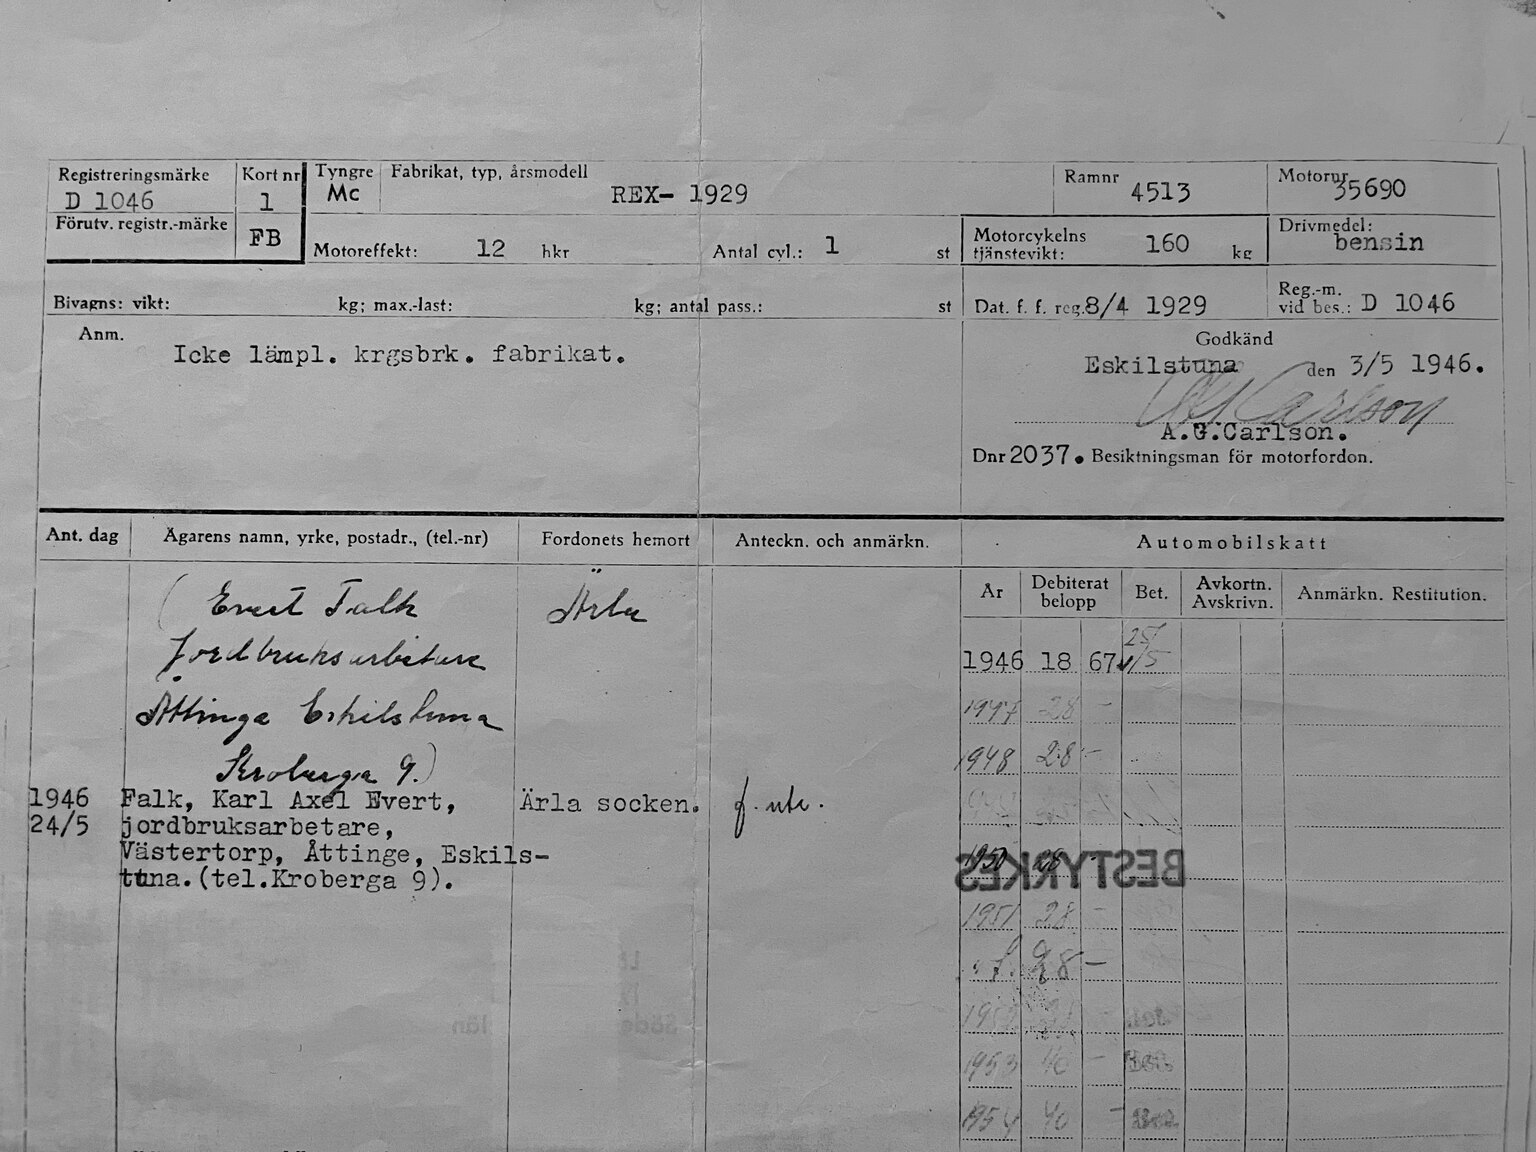 Registreringsmärke Kort nr Tyngre Fabrikat, typ, årsmodell Ramnr Motornr
D 1046 1 Mc REX- 1929 4513 35690
Förutv. registr.-märke FB Motoreffekt: 12 hkr Antal cyl.: 1 st Motorcykelns tjänstevikt: 160 kg Drivmedel: bensin
Bivagns: vikt: kg; max.-last: kg; antal pass.: st Dat. f. f. reg. 8/4 1929 Reg.-m. vid bes.: D 1046
Anm. Godkänd
Icke lämpl. krgsbrk. fabrikat. Eskilstuna den 3/5 1946.
Carlson
A.G.Carlson.
Dnr 2037. Besiktningsman för motorfordon.
Ant. dag Ägarens namn, yrke, postadr., (tel.-nr) Fordonets hemort Anteckn. och anmärkn. Automobilskatt
År Debiterat belopp Bet. Avkortn. Avskrivn. Anmärkn. Restitution.
(Evert Falk Ärla
Jordbruksarbetare 1946 18 67 25/5
Åttinge Eskilstuna 1947 28 -
Kroberga 9.) 1948 28 -
1946 Falk, Karl Axel Evert, Ärla socken.
24/5 jordbruksarbetare,
Västertorp, Åttinge, Eskils-
tuna.(tel.Kroberga 9). 1950 28
BESTYRKES
1951 28 -
28 -
1953 40 -
1954 40 -